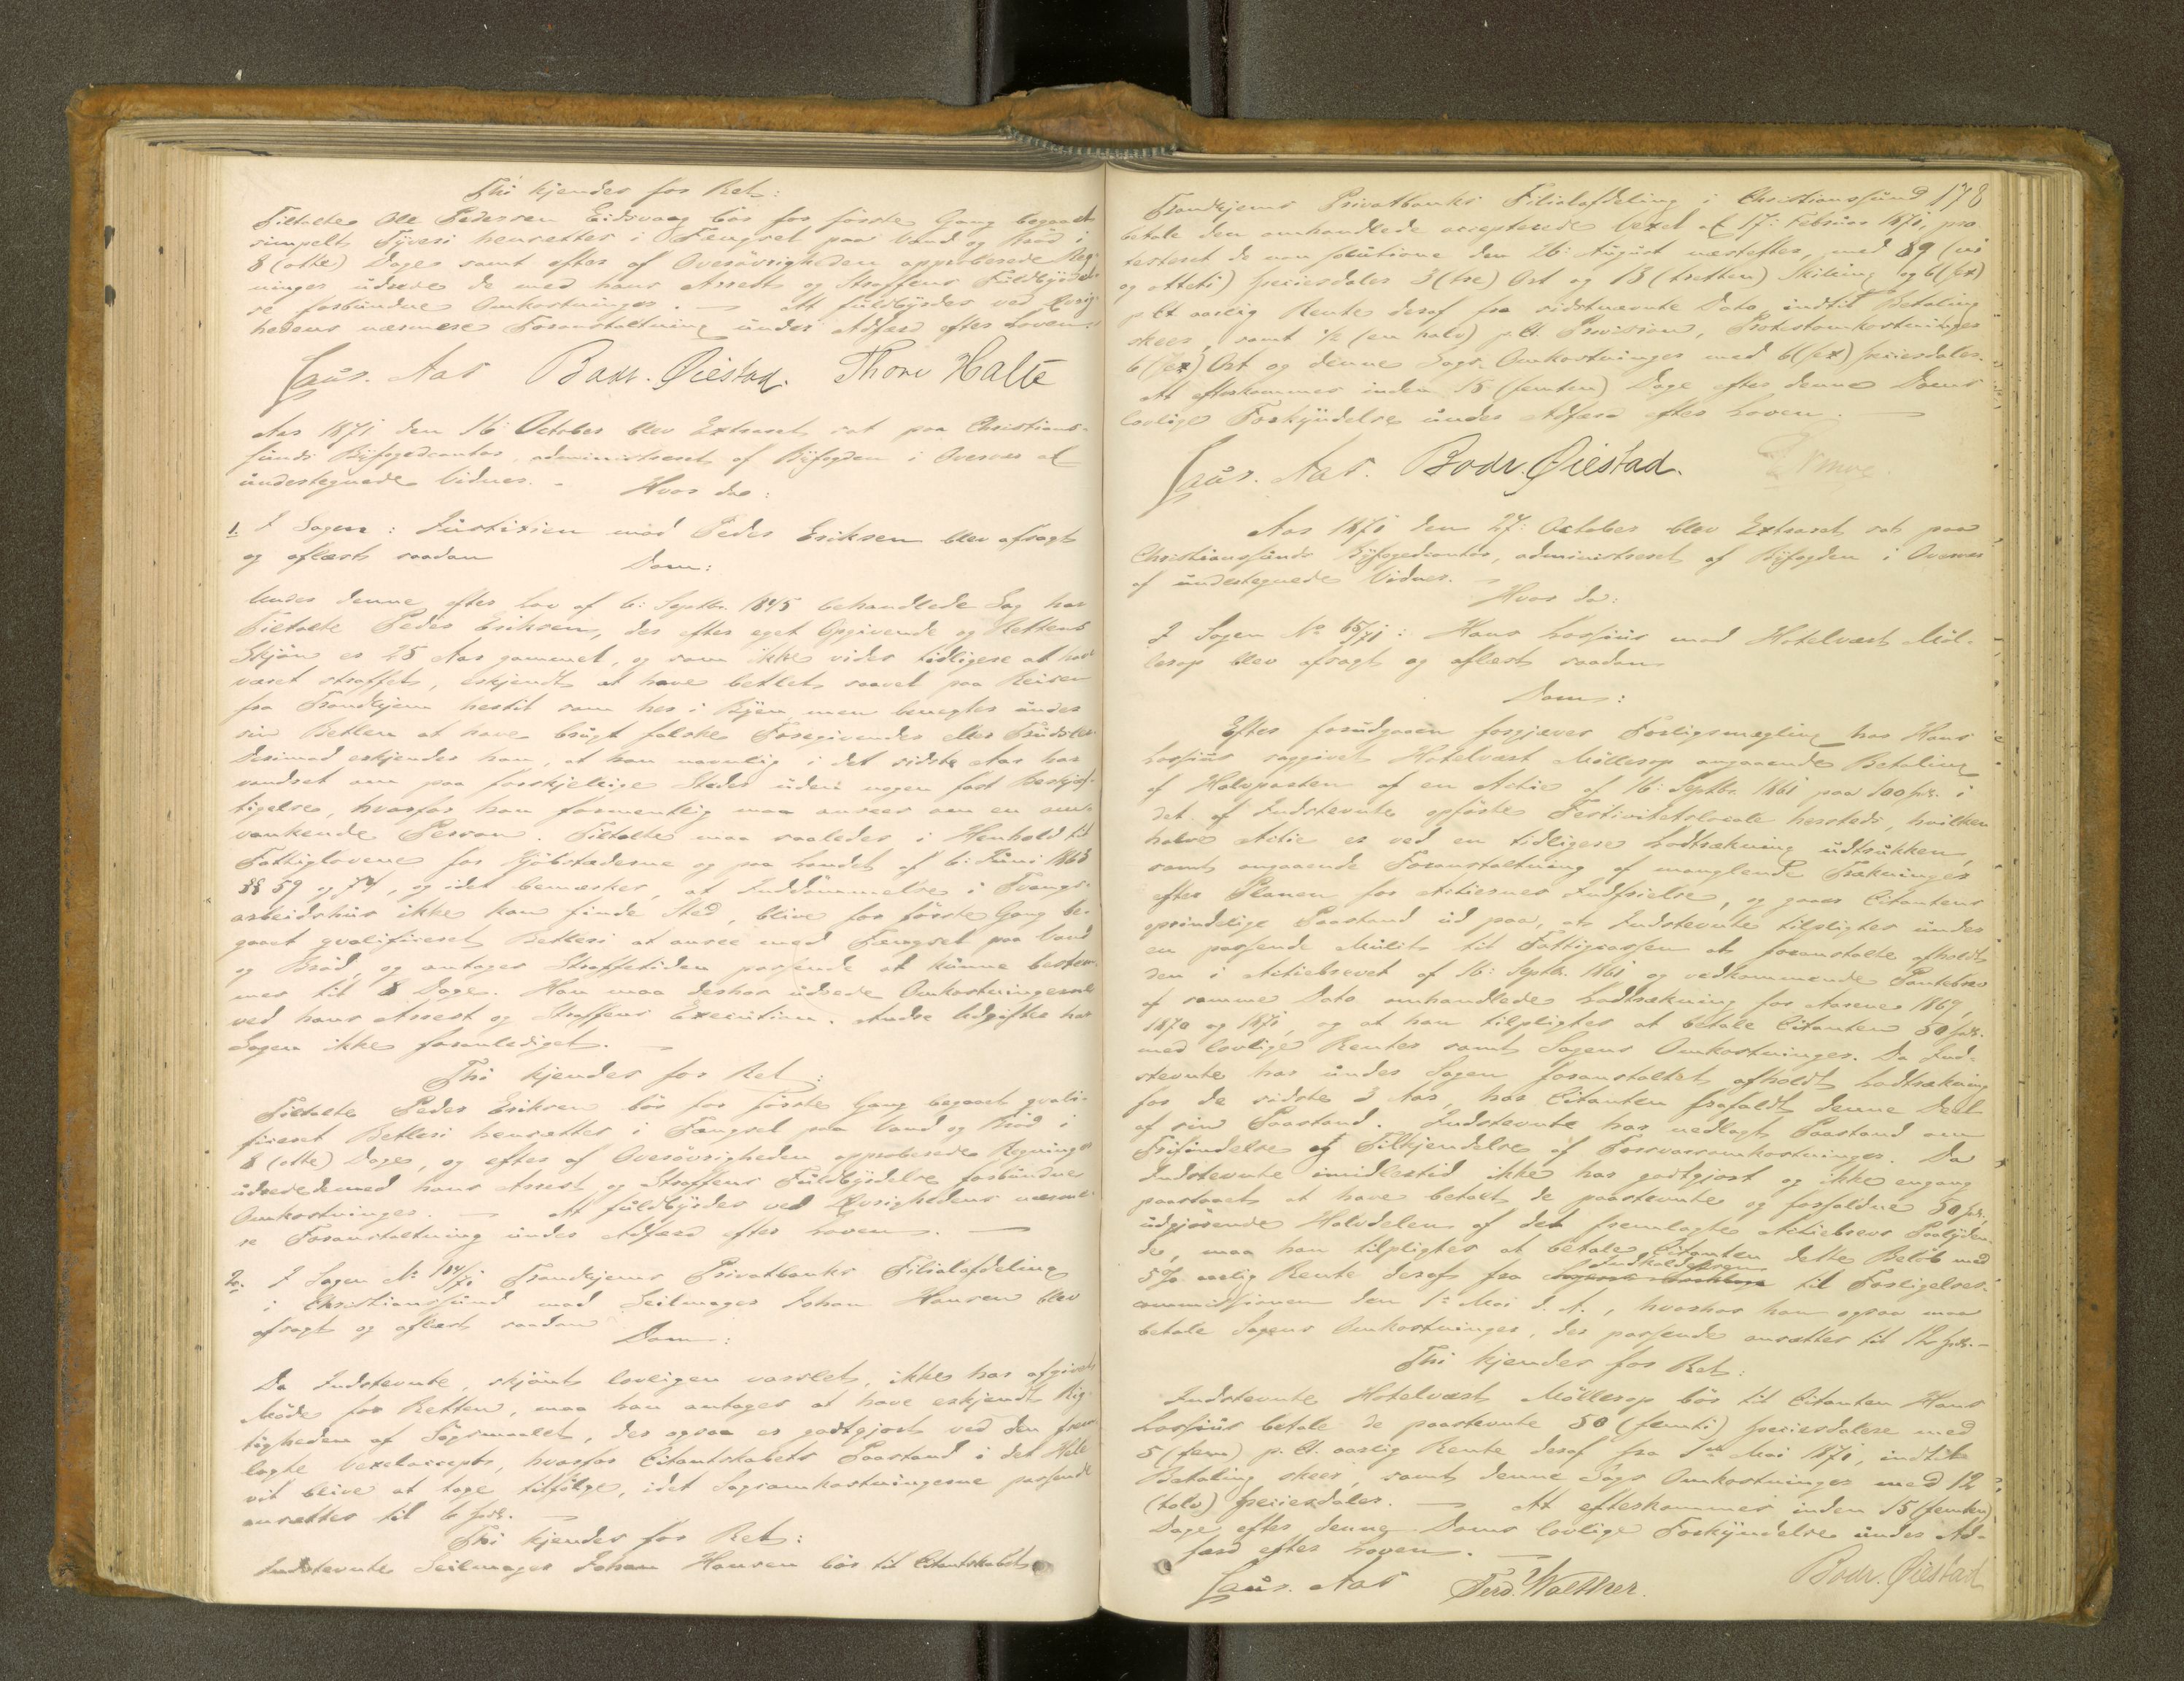 Thi kjendes for Ret:
Tiltalte Ole Pedersen Eidsvaag bör for förste Gang begaaet
simpelt Tyveri hensættes i Fængsel paa Vand og Bröd i
8 (otte) Dage samt efter af Overövrigheden approberede Reg-
ninger udrede de med hans Arrest og Straffens Fuldbyrdel-
se forbundne Omkostninger. — At fuldbyrdes ved Övrig-
hedens nærmere Foranstaltning under Adfærd efter Loven.
Laus. Aas Bodv. Øiestad. Thore Halte
Aar 1871 den 16: October blev Extraret sat paa Christian-
sunds Byfogedcontor, administreret af Byfogden i Overvær af
undertegnede Vidner. - Hvor da:
1. I Sagen: Justitien mod Peder Eriksen blev afsagt
og aflæst saadan
Dom:
Under denne efter Lov af 6: Septbr. 1845 behandlede Sag har
Tiltalte Peder Eriksen, der efter eget Opgivende og Rettens
Skjön er 25 Aar gammel, og som ikke vides tidligere at have
været straffet, erkjendt at have betlet saavel paa Reisen
fra Trondhjem hertil som her i Byen men benegtes under
sin Betlen at have brugt falske Foregivender eller Trudsler
Derimod erkjender han, at han navnlig i det sidste Aar har
vandret om paa forskjellige Steder uden nogen fast Beskjæf-
tigelse, hvorfor han formentlig maa ansees som en om-
vankende Person. Tiltalte maa saaledes i Henhold til
Fattiglovene for Kjöbstæderne og paa Landet af 6: Juni 1863
§§ 59 og 74, og idet bemærkes, at Inddömmelse i Tvangs-
arbeidshus ikke kan finde Sted, blive for förste Gang be-
gaaet qvalificeret Betleri at ansee med Fængsel paa Vand
og Bröd, og antages Straffetiden passende at kunne bestem-
mes til 8 Dage. Han maa derhos udrede Omkostningerne
ved hans Arrest og Straffens Execution. Andre Udgifter har
Sagen ikke foranlediget. —
Thi kjendes for Ret:
Tiltalte Peder Eriksen bör for förste Gang begaaet qvali-
ficeret Betleri hensættes i Fængsel paa Vand og Bröd i
8 (otte) Dage, og efter af Overövrigheden approberede Regninger
udrede de med hans Arrest og Straffens Fuldbyrdelse forbundne
Omkostninger. — At fuldbyrdes ved Övrighedens nærme-
re Foranstaltning under Adfærd efter Loven. —
2. I Sagen No 184/71 Trondhjems Privatbanks Filialafdeling
i Christianssund mod Seilmager Johan Hansen blev
afsagt og aflæst saadan
Dom:
Da Indstevnte, skjöndt lovligen varslet, ikke har afgivet
Möde for Retten, maa han antages at have erkjendt Rig-
tigheden af Sögsmaalet, der ogsaa er godtgjort ved den frem-
lagte Vexelaccept, hvorfor Citantskabets Paastand i det Hele
vil blive at tage tilfölge, idet Sagsomkostningerne passende
ansættes til 6 Spdr. —
Thi kjendes for Ret:
Indstevnte Seilmager Johan Hansen bör til Citantskabet
178
Trondhjems Privatbanks Filialafdeling i Christianssund
betale den omhandlede accepterede Vexel af 17: Februar 1871, pro-
testeret de non solutione den 26: August næstefter, med 89 (ni
og otteti) Speciesdaler 3 (tre) Ort og 13 (tretten) Skilling og 6 (sex)
p. Ct. aarlig Rente deraf fra sidstnævnte Dato indtil Betaling
skeer, samt ½ (en halv) p. Ct. Provision, Protestomkostninger
6 (sex) Ort og denne Sags Omkostninger med 6 (sex) Speciesdaler.
At efterkommes inden 15 (femten) Dage efter denne Doms
lovlige Forkyndelse under Adfærd efter Loven. —
Laus. Aas. Bodv. Øiestad.
Aar 1871 den 27: October blev Extraret sat paa
Christianssunds Byfogedcontor, administreret af Byfogden i Overvær
af undertegnede Vidner. —
Hvor da:
I Sagen No 65/71: Hans Lossius mod Hotelvært Möl-
lerop blev afsagt og aflæst saadan
Dom:
Efter forudgaaen forgjæves Forligsmægling har Hans
Lossius sagsgivet Hotelvært Möllerop angaaende Betaling
af Halvparten af en Actie af 16: Septbr. 1861 paa 100 Spd. i
det af Indstevnte opförte Festivitetslocale hersteds, hvilken
halve Actie er ved en tidligere Lodtrækning udtrukken,
samt angaaende Foranstaltning af manglende Trækninger
efter Planen for Actiernes Indfrielse, og gaaer Citantens
oprindelige Paastand ud paa, at Indstevnte tilpligtes under
en passende Mulct til Fattigcassen at foranstalte afholdt
den i Actiebrevet af 16: Septbr. 1861 og vedkommende Pantebrev
af samme Dato omhandlede Lodtrækning for Aarene 1869,
1870 og 1871, og at han tilpligtes at betale Citanten 50 Spdr.
med lovlige Renter samt Sagens Omkostninger. Da Ind-
stevnte har under Sagen foranstaltet afholdt Lodtrækning
for de sidste 3 Aar, har Citanten frafaldt denne Deel
af sin Paastand. Indstevnte har nedlagt Paastand om
Frifindelse og Tilkjendelse af Forsvarsomkostninger. Da
Indstevnte imidlertid ikke har godtgjort og ikke engang
paastaaet at have betalt de paastevnte og forfaldne 50 Spdr.,
udgjörende Halvdelen af det fremlagte Actiebrevs Paalyden-
de, maa han tilpligtes at betale Citanten dette Belöb med
5% aarlig Rente deraf fra Indkaldelsen til Forligelses-
commissionen den 1ste Mai d. A., hvorhos han ogsaa maa
betale Sagens Omkostninger, der passende ansættes til 12 Spdr. —
Thi kjendes for Ret:
Indstevnte Hotelvært Möllerop bör til Citanten Hans
Lossius betale de paastevnte 50 (femti) Speciesdalere med
5 (fem) p. Ct. aarlig Rente deraf fra 1ste Mai 1871, indtil
Betaling skeer, samt denne Sags Omkostninger med 12
(tolv) Speciesdaler. — At efterkommes inden 15 (femten)
Dage efter denne Doms lovlige Forkyndelse under Ad-
færd efter Loven. —
Laus. Aas Ferd. Walther. Bodv. Øiestad